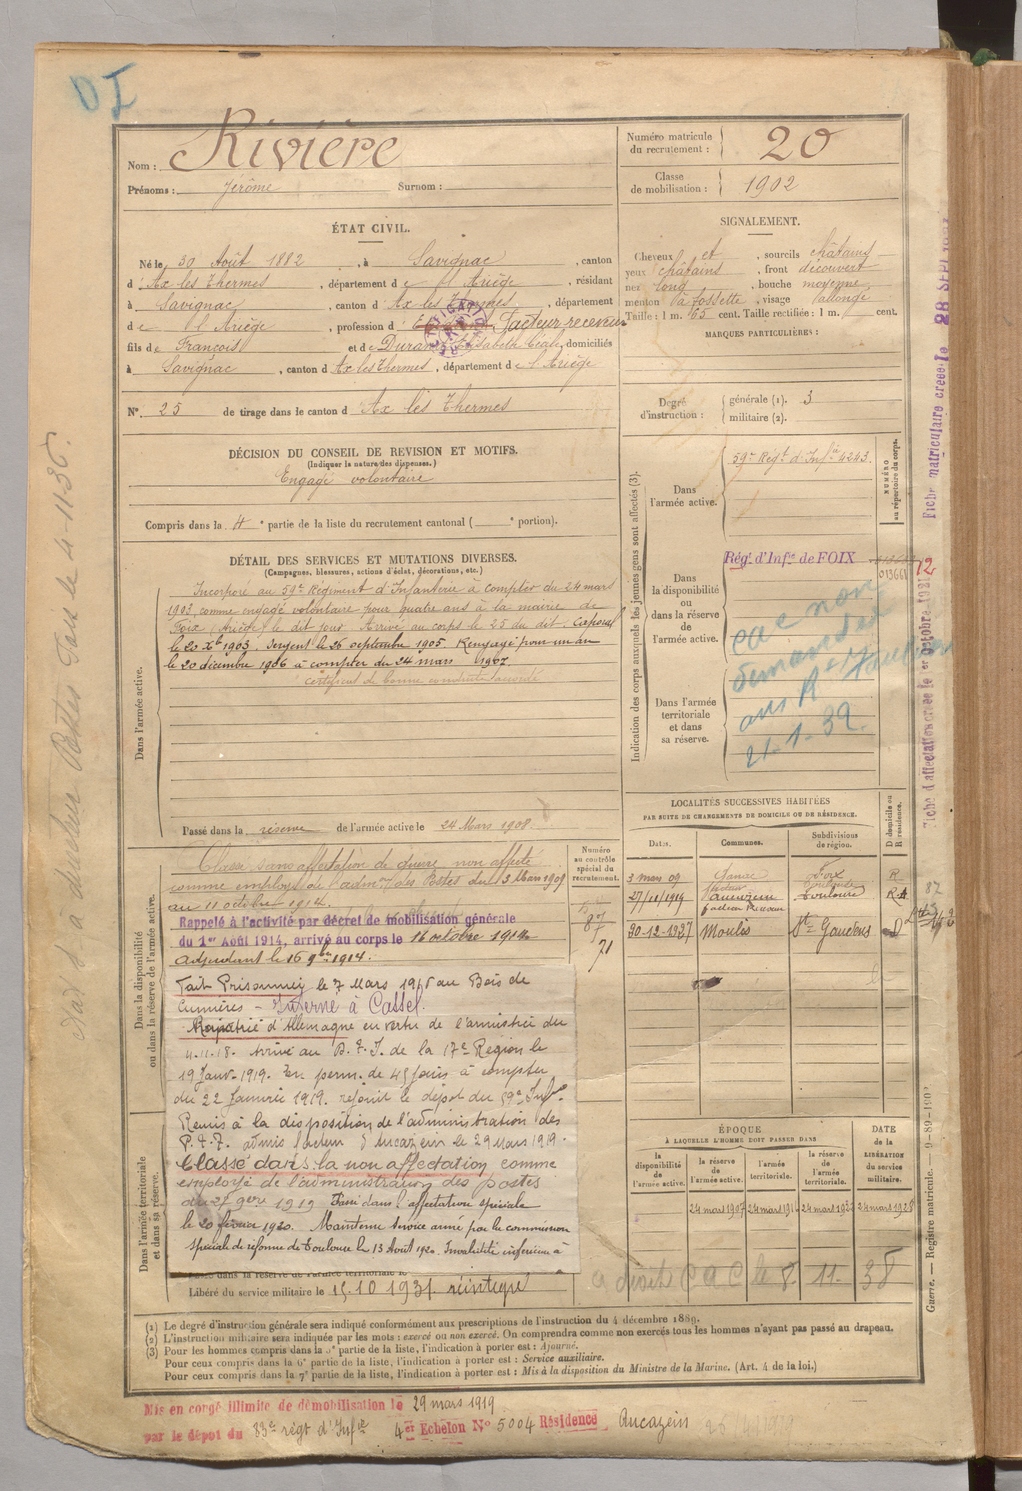 DI
Nom : Rivière
Prénoms : Jérôme Surnom :
Numéro matricule du recrutement : 20
Classe de mobilisation : 1902
ÉTAT CIVIL.
Né le 30 Août 1882, à Savignac, canton
d'Ax les Thermes, département de l'Ariège, résidant
à Savignac, canton d'Ax les Thermes, département
de l'Ariège, profession d' facteur receveur
fils de François et de Durand Elisabeth Cécile, domiciliés
à Savignac, canton d'Ax les Thermes, département de l'Ariège
N° 25 de tirage dans le canton d'Ax les Thermes
SIGNALEMENT.
Cheveux et, sourcils châtains
yeux châtains, front découvert
nez long, bouche moyenne
menton à fossette, visage allongé
Taille : 1 m. 65 cent. Taille rectifiée : 1 m. cent.
MARQUES PARTICULIÈRES :
Degré d'instruction : générale (1). 3
militaire (2).
DÉCISION DU CONSEIL DE REVISION ET MOTIFS.
(Indiquer la nature des dispenses.)
Engagé volontaire
Compris dans la 4e partie de la liste du recrutement cantonal ( e portion).
DÉTAIL DES SERVICES ET MUTATIONS DIVERSES.
(Campagnes, blessures, actions d'éclat, décorations, etc.)
Dans l'armée active.
Incorporé au 59e Régiment d'Infanterie à compter du 24 mars
1903 comme engagé volontaire pour quatre ans à la mairie de
Foix (Ariège) le dit jour. Arrivé au corps le 25 du dit. Caporal
le 20 Xbre 1903. Sergent le 26 septembre 1905. Rengagé pour un an
le 20 décembre 1906 à compter du 24 mars 1907
certificat de bonne conduite accordé
Passé dans la réserve de l'armée active le 24 Mars 1908.
Indication des corps auxquels les jeunes gens sont affectés (3).
NUMÉRO au répertoire du corps.
Dans l'armée active.
59e Régt d'Infie 4243.
Dans la disponibilité ou dans la réserve de l'armée active.
Rég. d'Infie de FOIX
013668
12
Dans l'armée territoriale et dans sa réserve.
cac non
demandé
21-1-39.
Fiche matriculaire créée le 28 SEPT
Fiche d'affectation créée le 1er Octobre 1931
LOCALITÉS SUCCESSIVES HABITÉES
PAR SUITE DE CHANGEMENTS DE DOMICILE OU DE RÉSIDENCE.
Dates. Communes. Subdivisions de région. D domicile ou R résidence.
3 mars 09 Foix R
27/11/1919 Toulouse R
30-12-1937 Moulis St Gaudens D
87
Dans la disponibilité ou dans la réserve de l'armée active.
Numéro au contrôle spécial du recrutement.
87
71
Classé sans affectation de guerre non affecté
comme employé de l'admon des Postes du 3 Mars 1909
au 11 octobre 1914.
Rappelé à l'activité par décret de mobilisation générale
du 1er Août 1914, arrivé au corps le 16 octobre 1914
Adjudant le 16 9bre 1914.
Fait Prisonnier le 7 Mars 1916 au Bois de
Cumières - Interné à Cassel.
Rapatrié d'Allemagne en vertu de l'armistice du
11.11.18. Arrivé au D.T.I. de la 17e Région le
19 Janv. 1919. En perm. de 45 jours à compter
du 22 Janvier 1919. rejoint le dépôt du 59e Infie
Remis à la disposition de l'administration des
P.T.T. admis facteur à Aucazein le 29 Mars 1919.
Classé dans la non affectation comme
employé de l'administration des postes
du 27 9bre 1919 Passé dans l'affectation spéciale
le 20 février 1920. Maintenu Service armé par la commission
spéciale de réforme de Toulouse le 13 Août 1920. Invalidité inférieure à
Dans l'armée territoriale et dans sa réserve.
dans la réserve de l'armée territoriale le
Libéré du service militaire le 15.10 1931. réintégré
ÉPOQUE
À LAQUELLE L'HOMME DOIT PASSER DANS
la disponibilité de l'armée active. la réserve de l'armée active. l'armée territoriale. la réserve de l'armée territoriale. DATE de la LIBÉRATION du service militaire.
24 mars 1907 24 mars 191 24 mars 192 24 mars 1928
CAC le 8 11. 38
(1) Le degré d'instruction générale sera indiqué conformément aux prescriptions de l'instruction du 4 décembre 1889.
(2) L'instruction militaire sera indiquée par les mots : exercé ou non exercé. On comprendra comme non exercés tous les hommes n'ayant pas passé au drapeau.
(3) Pour les hommes compris dans la 5e partie de la liste, l'indication à porter est : Ajourné.
Pour ceux compris dans la 6e partie de la liste, l'indication à porter est : Service auxiliaire.
Pour ceux compris dans la 7e partie de la liste, l'indication à porter est : Mis à la disposition du Ministre de la Marine. (Art. 4 de la loi.)
Guerre. — Registre matricule. — 9-89-190
Mis en congé illimité de démobilisation le 29 mars 1919
par le dépôt du 83e régt d'Infie 4er Echelon N° 5004 Résidence Aucazein